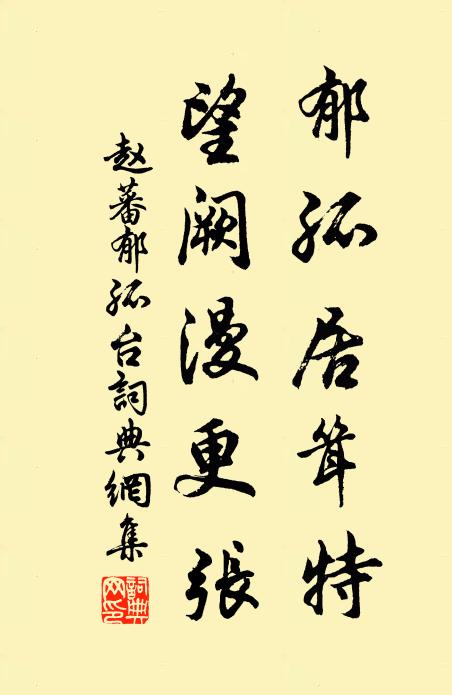 郁孤居耸特
望阙漫更張
赵蕃郁孤台詞典網集
詞典網印